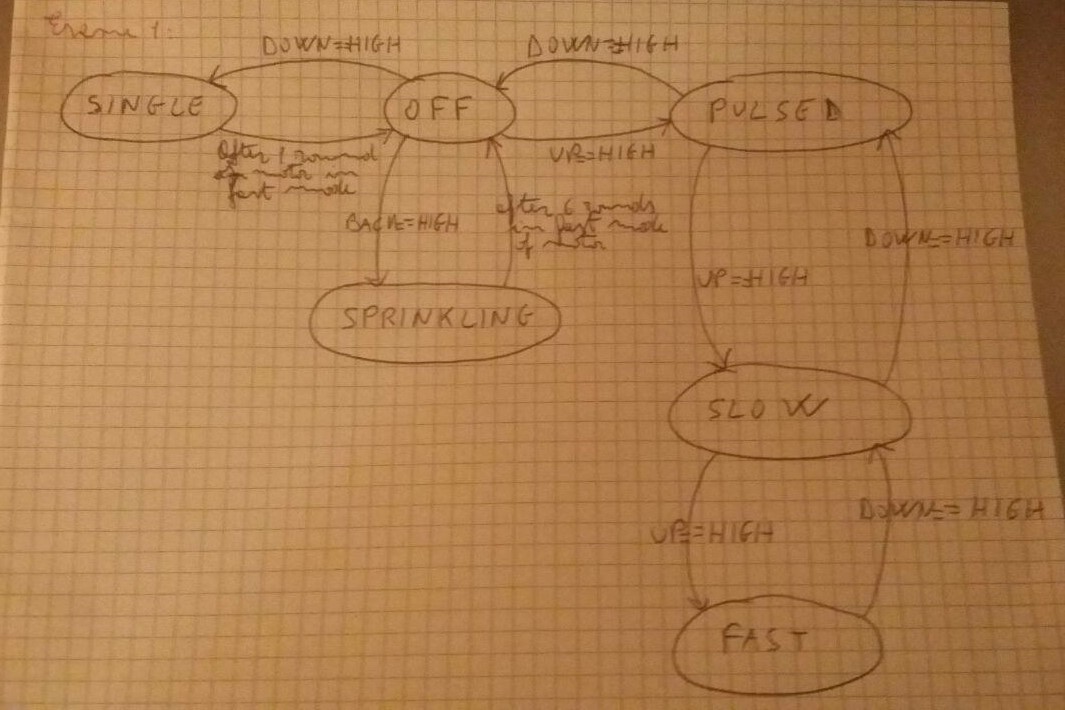 1:
DOWN=HIGH
DOWN=HIGH
SINGLE
OFF
PULSED
After 1 round
of motor in
fast mode
UP=HIGH
BACK=HIGH
after 6 rounds
in fast mode
of motor
DOWN=HIGH
UP=HIGH
SPRINKLING
SLOW
UP=HIGH
DOWN=HIGH
FAST